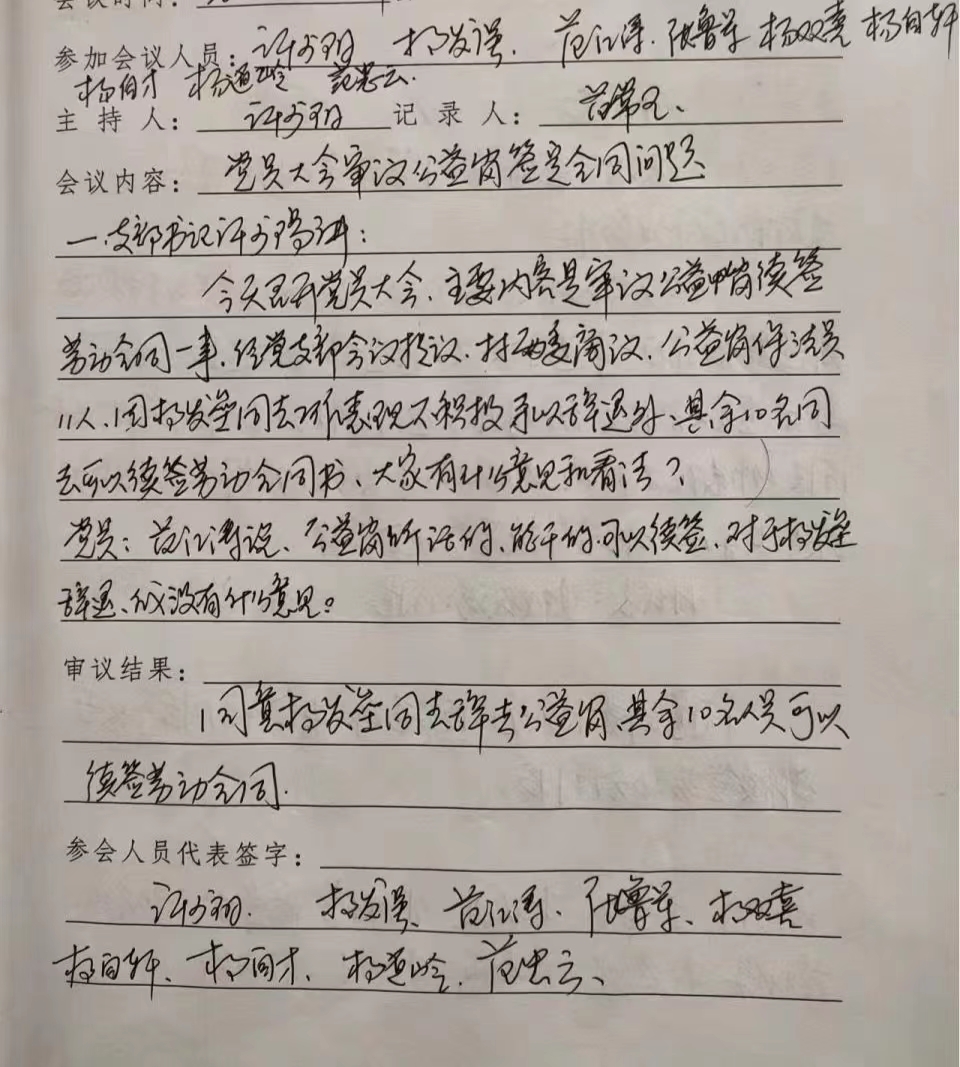 会议时间：
参加会议人员：许少翔 杨发强、范江涛、张鲁军 杨双喜 杨自轩
杨自才 杨道岭 范忠云.
主持人：许少翔 记录人：
会议内容：党员大会审议公益岗签定合同问题
一.支部书记许少翔讲：
今天召开党员大会、主要内容是审议公益岗续签
劳动合同一事、经党支部会议提议、村两委商议、公益岗保洁员
11人、1因杨发 同志工作表现不积极予以辞退外、其余10名同
志可以续签劳动合同书、大家有什么意见和看法？
党员：范江涛说、公益岗听话的、能干的、可以续签、对于杨发
辞退、我没有什么意见。
审议结果：
1同意杨发 同志辞去公益岗、其余10名人员可以
续签劳动合同.
参会人员代表签字：
许少翔. 杨发强、范江涛、张鲁军、杨双喜
杨自轩、杨自才、杨道岭、范忠云、